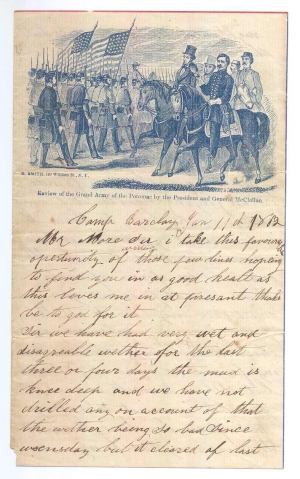 Review of the Grand Army of the Potomac by the President and General McClellan.
Camp Jan 11th 1862
Mr More Sir, i take this favorable
opertunity of writing those few lines hoping
to find you in as good healt as
this leves me in at presant thaks
be to god for it
Sir we have had very wet and
disagreable wether for the last
three or four days the mud is
knee deep and we have not
drilled any on account of that
the wether being so bad since
wensday but it cleared of last